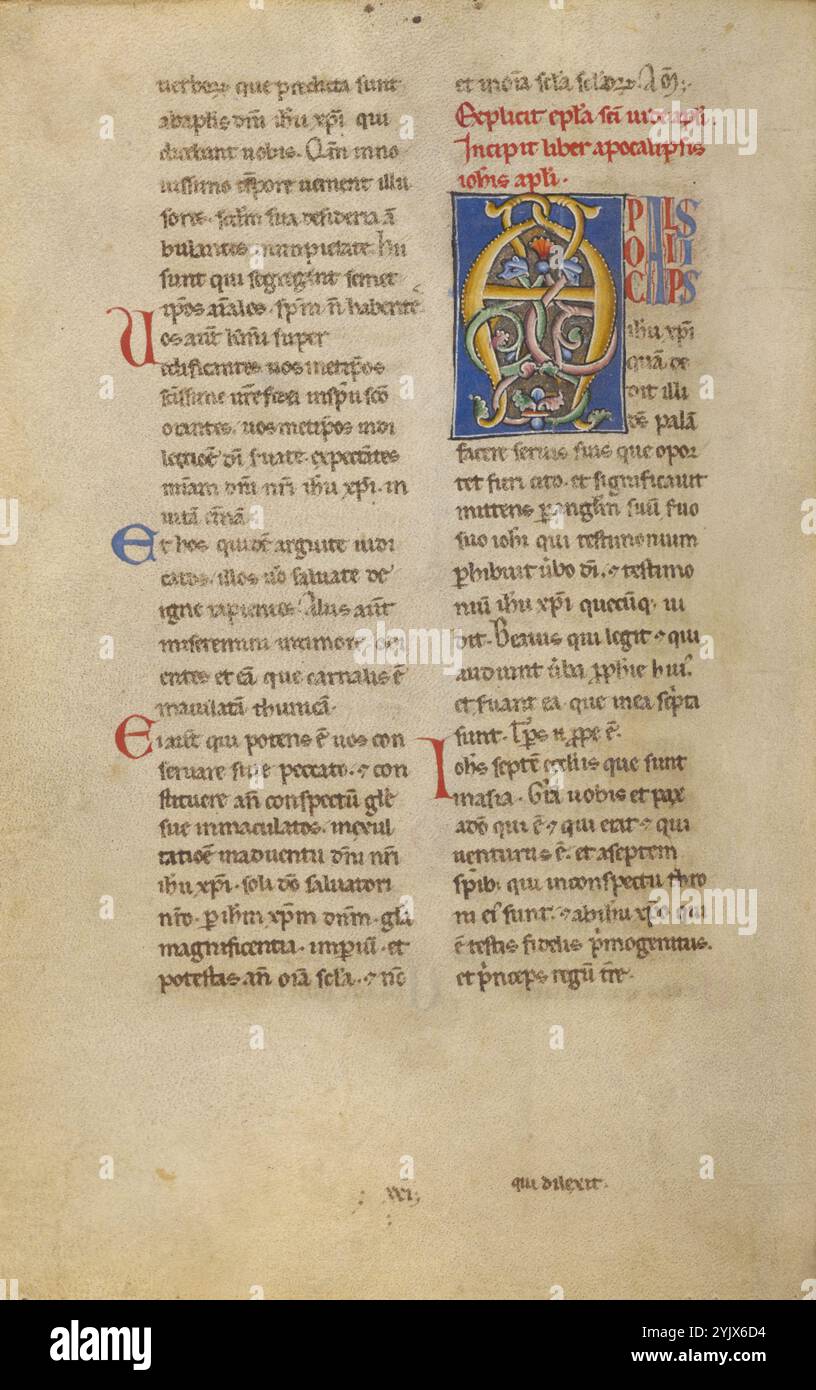 uerboɿ que predicta sunt
abaplis dni ihu xpi qui
dicebant uobis. Qm in no
uissimo tpore uenient illu
sores. sua desideria a
bulantes
sunt qui segregant semet
ipsos aiales. spm n habente
Uos aut kmi super
edificantes uos metipsos
scissime ure fidei in spu sco
orantes. uos metipsos in di
lectioe di suate. expectantes
miam dni nri ihu xpi. in
uita etna
Et hos quide arguite iudi
catos. illos u o saluate de
igne rapientes. Aliis aut
miseremini in timore
entes et ea que carnalis e
maculata thunica.
Ei aut qui potens e uos con
seruare sine peccato. ⁊ con
stituere an conspectu gle
sue immaculatos. in exul
tatioe in aduentu dni nri
ihu xpi. soli do saluatori
nro. p ihm xpm dnm. gla
magnificentia. imperiu. et
potestas. an oia scla. ⁊ nc
et in oia scla scloɿ. Am.
Explicit epla sci iude apli.
Incipit liber apocalipsis
iohis apli.
APOCALIPSIS
ihu xpi
qua de
dit illi
ds pala
facere seruis suis que opor
tet fieri cito. et significauit
mittens p anglm suu suo
suo iohi qui testimonium
phibuit ubo di. ⁊ testimo
niu ihu xpi quecuq. ui
dit. Beatus qui legit ⁊ qui
audiunt uba pphie hui.
et suant ea que in ea scpta
sunt. Tps n ppe e.
Iohs septe ecclis que sunt
in asia. Gra uobis et pax
ado qui e ⁊ qui erat ⁊ qui
uenturus e. et a septem
spib. qui in conspectu thro
ni ei sunt. ⁊ ab ihu xpo qui
e testis fidelis pmogenitus.
et pnceps regu tre.
xxi
qui dilexit.
alamy
alamy
Image ID: 2YJX6D4
www.alamy.com